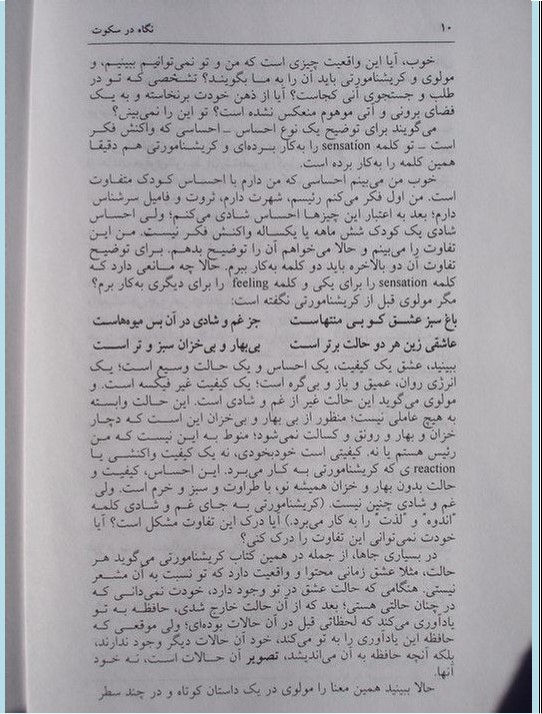 ۱۰ نگاه در سکوت
خوب، آیا این واقعیت چیزی است که من و تو نمی‌توانیم ببینیم، و
مولوی و کریشنامورتی باید آن را به ما بگویند؟ تشخصی که تو در
طلب و جستجوی آنی کجاست؟ آیا از ذهن خودت برنخاسته و به یک
فضای برونی و آتی موهوم منعکس نشده است؟ تو این را نمی‌بینی؟
می‌گویند برای توضیح یک نوع احساس ــ احساسی که واکنش فکر
است ــ تو کلمه sensation را به‌کار برده‌ای و کریشنامورتی هم دقیقا
همین کلمه را به‌کار برده است.
خوب من می‌بینم احساسی که من دارم با احساس کودک متفاوت
است. من اول فکر می‌کنم رئیسم، شهرت دارم، ثروت و فامیل سرشناس
دارم؛ بعد به اعتبار این چیزها احساس شادی می‌کنم؛ ولی احساس
شادی یک کودک شش ماهه یا یکساله واکنش فکر نیست. من این
تفاوت را می‌بینم و حالا می‌خواهم آن را توضیح بدهم. برای توضیح
تفاوت آن دو بالاخره باید دو کلمه به‌کار ببرم. حالا چه مانعی دارد که
کلمه sensation را برای یکی و کلمه feeling را برای دیگری به‌کار برم؟
مگر مولوی قبل از کریشنامورتی نگفته است:
باغ سبز عشق کو بی منتهاست جز غم و شادی در آن بس میوه‌هاست
عاشقی زین هر دو حالت برتر است بی‌بهار و بی‌خزان سبز و تر است
ببینید، عشق یک کیفیت، یک احساس و یک حالت وسیع است؛ یک
انرژی روان، عمیق و باز و بی‌گره است؛ یک کیفیت غیر فیکسه است. و
مولوی می‌گوید این حالت غیر از غم و شادی است. این حالت وابسته
به هیچ عاملی نیست؛ منظور از بی بهار و بی‌خزان این است که دچار
خزان و بهار و رونق و کسالت نمی‌شود؛ منوط به این نیست که من
رئیس هستم یا نه. کیفیتی است خودبخودی، نه یک کیفیت واکنشی یا
reaction ی که کریشنامورتی به کار می‌برد. این احساس، کیفیت و
حالت بدون بهار و خزان همیشه نو، با طراوت و سبز و خرم است. ولی
غم و شادی چنین نیست. (کریشنامورتی به جای غم و شادی کلمه
"اندوه" و "لذت" را به کار می‌برد.) آیا درک این تفاوت مشکل است؟ آیا
خودت نمی‌توانی این تفاوت را درک کنی؟
در بسیاری جاها، از جمله در همین کتاب کریشنامورتی می‌گوید هر
حالت، مثلا عشق زمانی محتوا و واقعیت دارد که تو نسبت به آن مشعر
نیستی. هنگامی که حالت عشق در تو وجود دارد، خودت نمی‌دانی که
در چنان حالتی هستی؛ بعد که از آن حالت خارج شدی، حافظه به تو
یادآوری می‌کند که لحظاتی قبل در آن حالات بوده‌ای؛ ولی موقعی که
حافظه این یادآوری را به تو می‌کند، خود آن حالات دیگر وجود ندارند،
بلکه آنچه حافظه به آن می‌اندیشد، تصویر آن حالات است، نه خود
آنها.
حالا ببینید همین معنا را مولوی در یک داستان کوتاه و در چند سطر